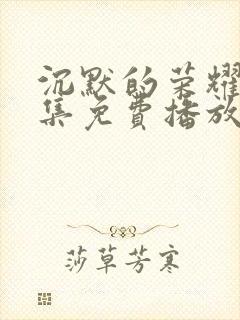 沉默的荣耀
集免費播放
莎草芳寒